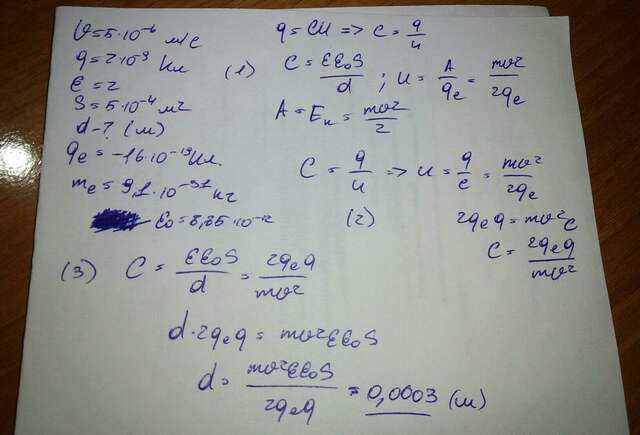 υ=5·10⁻⁶ м/с
q=2·10⁻⁹ Кл
ε=2
S=5·10⁻⁴ м²
d-? (м)
qₑ=-16·10⁻¹⁹Кл.
mₑ=9,1·10⁻³¹ кг
ε₀=8,85·10⁻¹²
q=CU => C=q/u
(1) C=εε₀S/d ; U=A/qₑ=mυ²/2qₑ
A=Eк=mυ²/2
C=q/u => u=q/c=mυ²/2qₑ
(2) 2qₑq=mυ²C
C=2qₑq/mυ²
(3) C=εε₀S/d=2qₑq/mυ²
d·2qₑq=mυ²εε₀S
d=mυ²εε₀S/2qₑq=0,0003 (м)